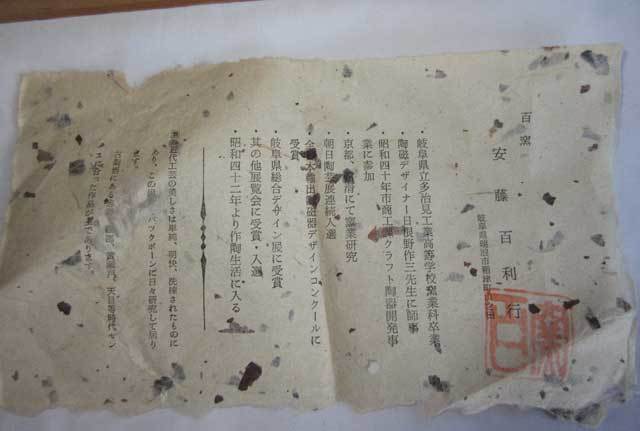 百窯
安藤百利行
岐阜県瑞浪市稲津町
・岐阜県立多治見工業高等学校窯業科卒業
・陶磁デザイナー日根野作三先生に師事
・昭和四十年市商工課クラフト陶器開発事
業に参加
・京都、にて窯業研究
・朝日陶芸展連続入選
・全日本輸出陶磁器デザインコンクールに
受賞
・岐阜県総合デザイン展に受賞
・其の他展覧会に受賞・入選
・昭和四十二年より作陶生活に入る
近代工芸の美しさは単純、明快、洗練されたものに
あり、この バックボーンに日々研究して居り
ます。
、黄瀬戸、天目等時代セン
スに合った作品が夢であります。